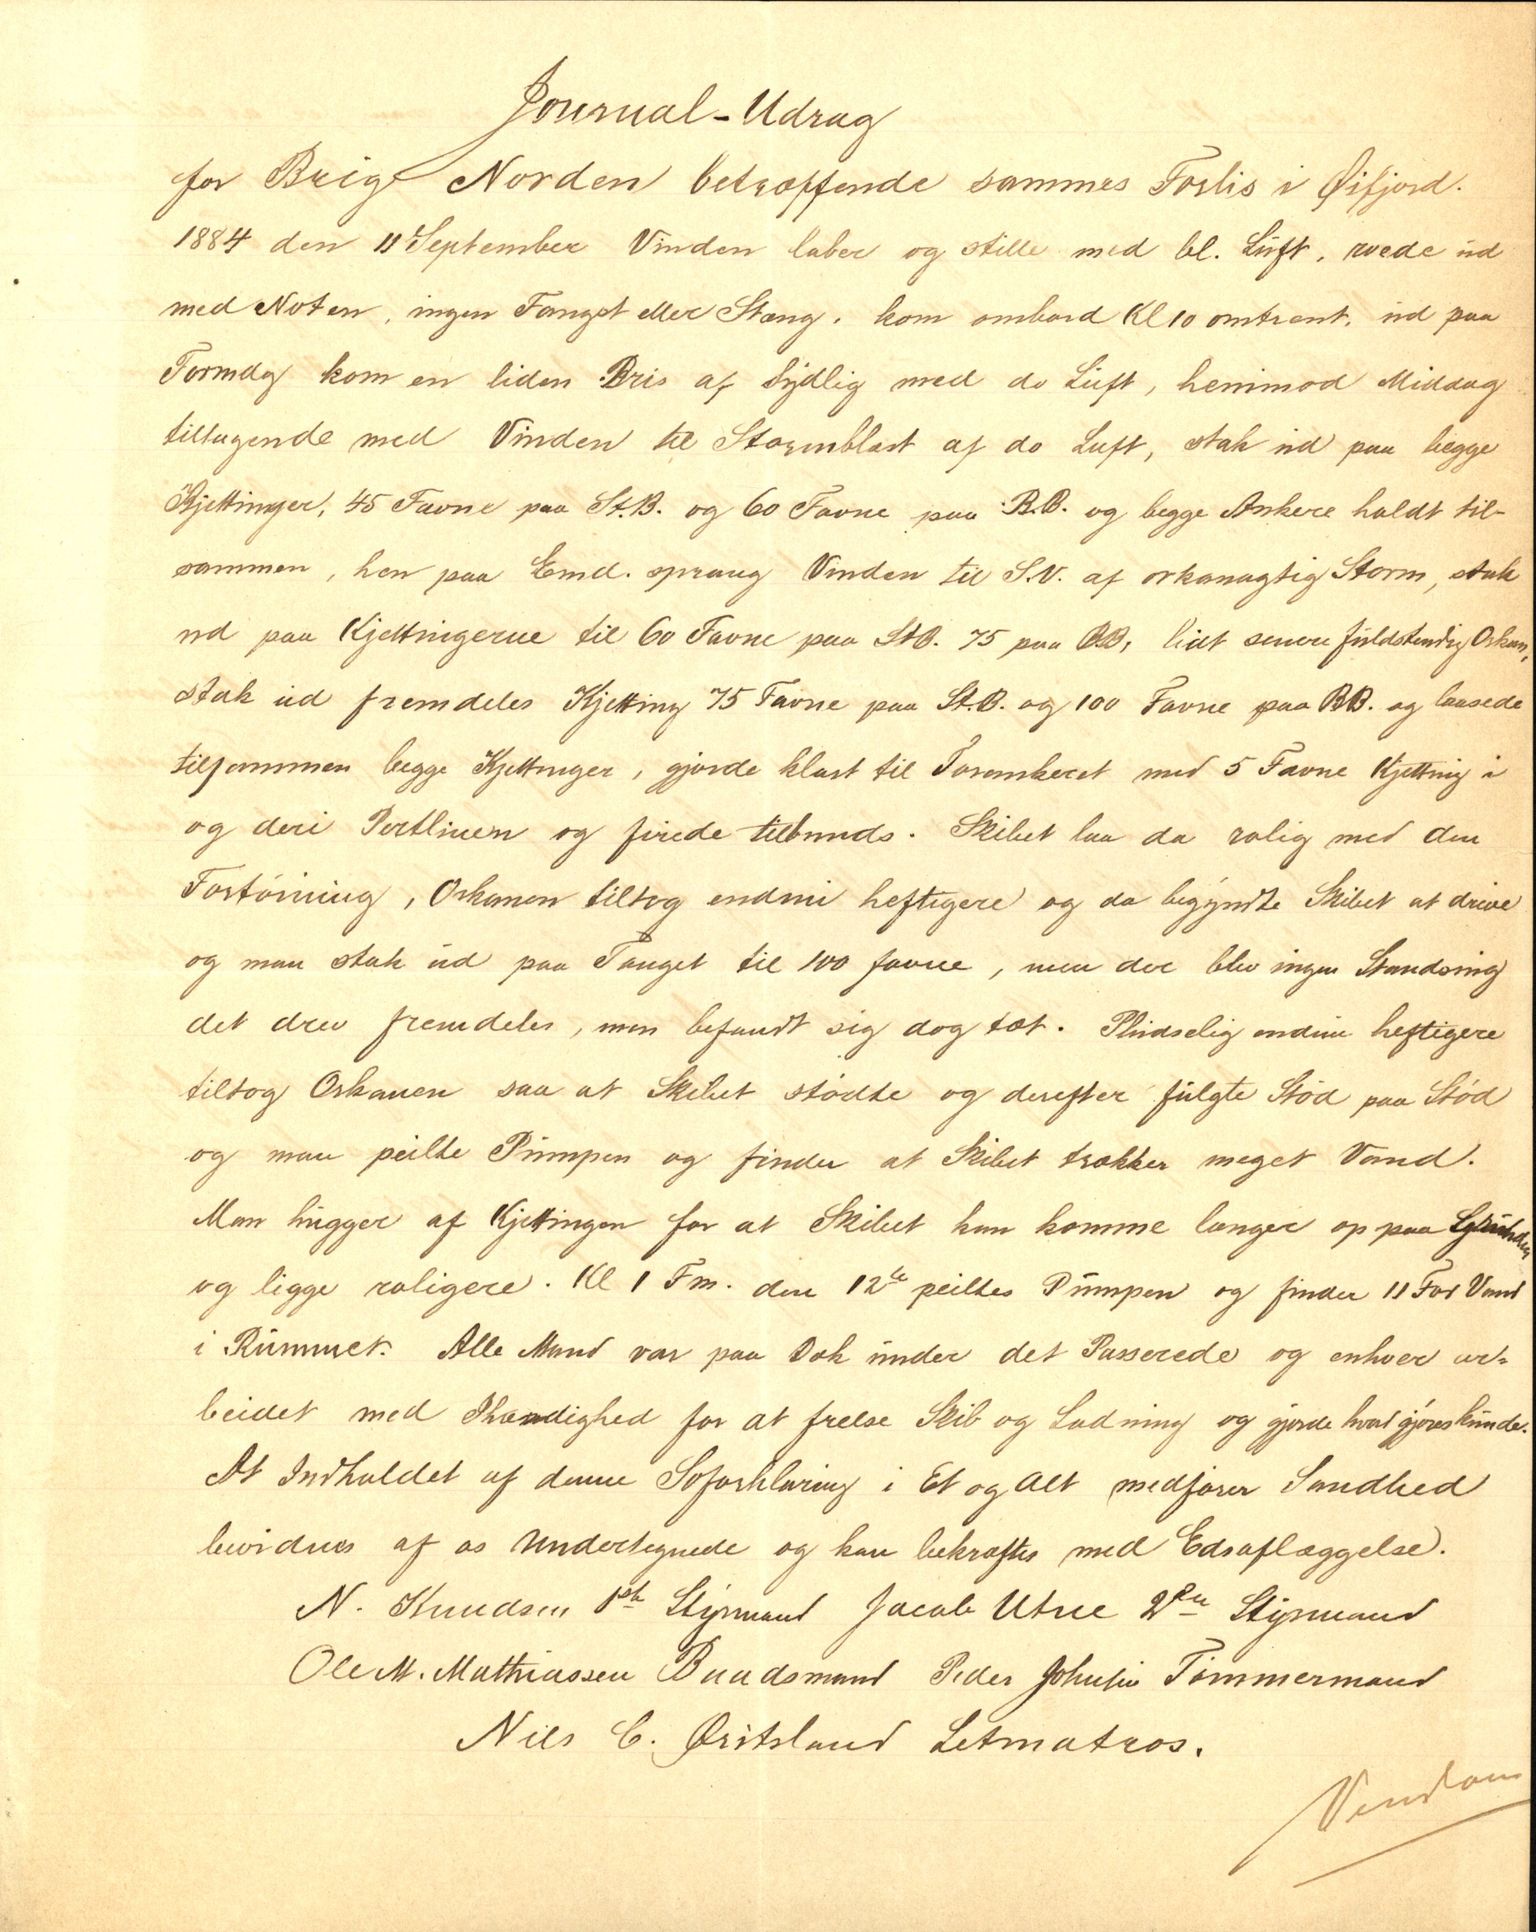 Journal-Udrag
for Brig Norden betræffende sammes Forlis i Øifjord.
1884 den 11 September Vinden laber og stille med bl. Luft, roede ud
med Noten, ingen Fangst eller Stæng. kom ombord Kl 10 omtrent, ud paa
Formdg kom en liden Bris af Sydlig med do Luft, henimod Middag
tiltagende med Vinden til Stormblast af do Luft, stak ud paa begge
Kjettinger, 45 Favne paa St.B. og 60 Favne paa B.B. og begge Ankere holdt til-
sammen, hen paa Emd. sprang Vinden til S.V. af orkanagtig Storm, stak
ud paa Kjettingerne til 60 Favne paa StB. 75 paa BB, lidt senere fuldstendig Orkan,
stak ud fremdeles Kjetting 75 Favne paa St.B. og 100 Favne paa BB. og laasede
tilsammen begge Kjettinger, gjorde klart til Varpankeret med 5 Favne Kjetting i
og deri Pertlinen og firede tilbunds. Skibet laa da rolig med den
Fortøining, Orkanen tiltog endnu heftigere og da begyndte Skibet at drive
og man stak ud paa Tauget til 100 favne, men der blev ingen Standsning
det drev fremdeles, men befandt sig dog tæt. Pludselig endnu heftigere
tiltog Orkanen saa at Skibet stødte og derefter fulgte Stød paa Stød
og man peilte Pumpen og finder at Skibet trækker meget Vand.
Man hugger af Kjettingen for at Skibet kan komme længer op paa Grunden
og ligge roligere. Kl 1 Fm. den 12te peiltes Pumpen og finder 11 Fod Vand
i Rummet. Alle Mand var paa Dæk under det Passerede og enhver ar-
beidet med Ihærdighed for at frelse Skib og Ladning og gjorde hvad gjøres kunde.
At Indholdet af denne Søforklaring i Et og Alt medfører Sandhed
bevidnes af os Undertegnede og kan bekræftes med Edsaflæggelse.
N. Knudsen 1ste Styrmand Jacob Utne 2den Styrmand
Ole M. Mathiassen Baadsmand Peder Johnsen Tømmermand
Nils C. Østsland Letmatros.